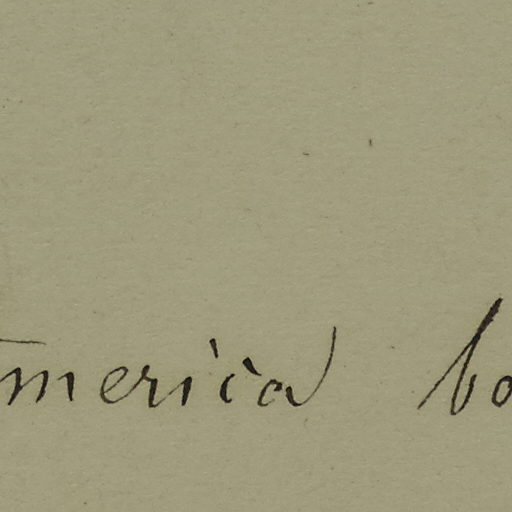 merica bo